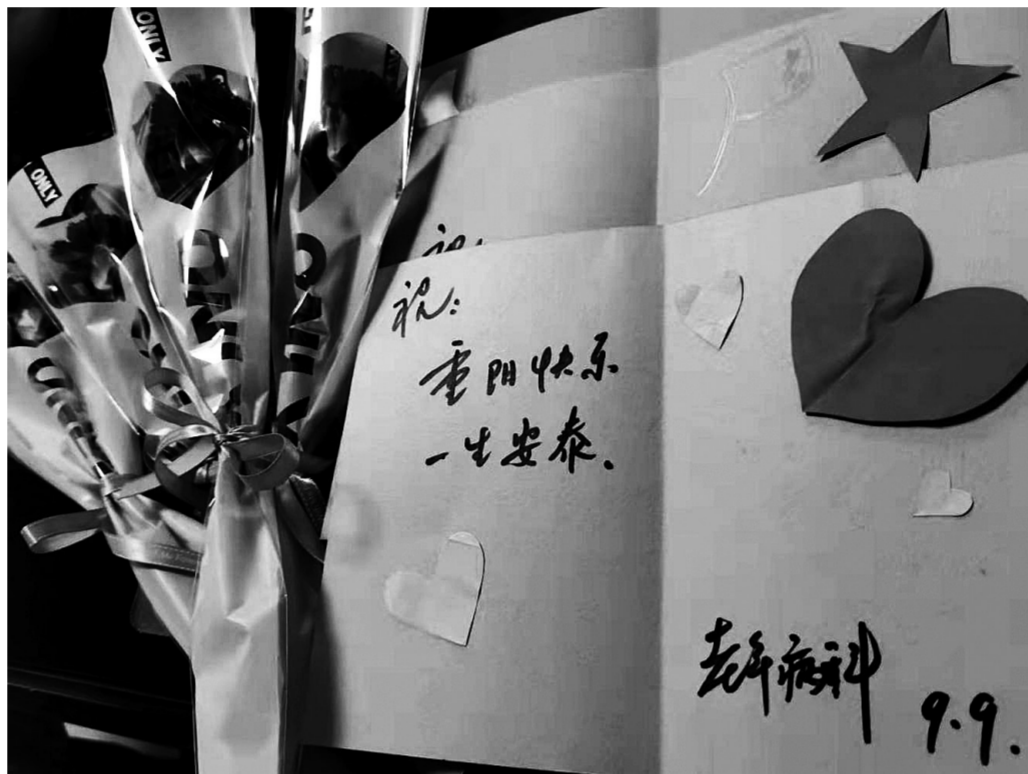 ONLY
ONLY
祝
祝:
重阳快乐
一生安泰.
老年病科
9.9.